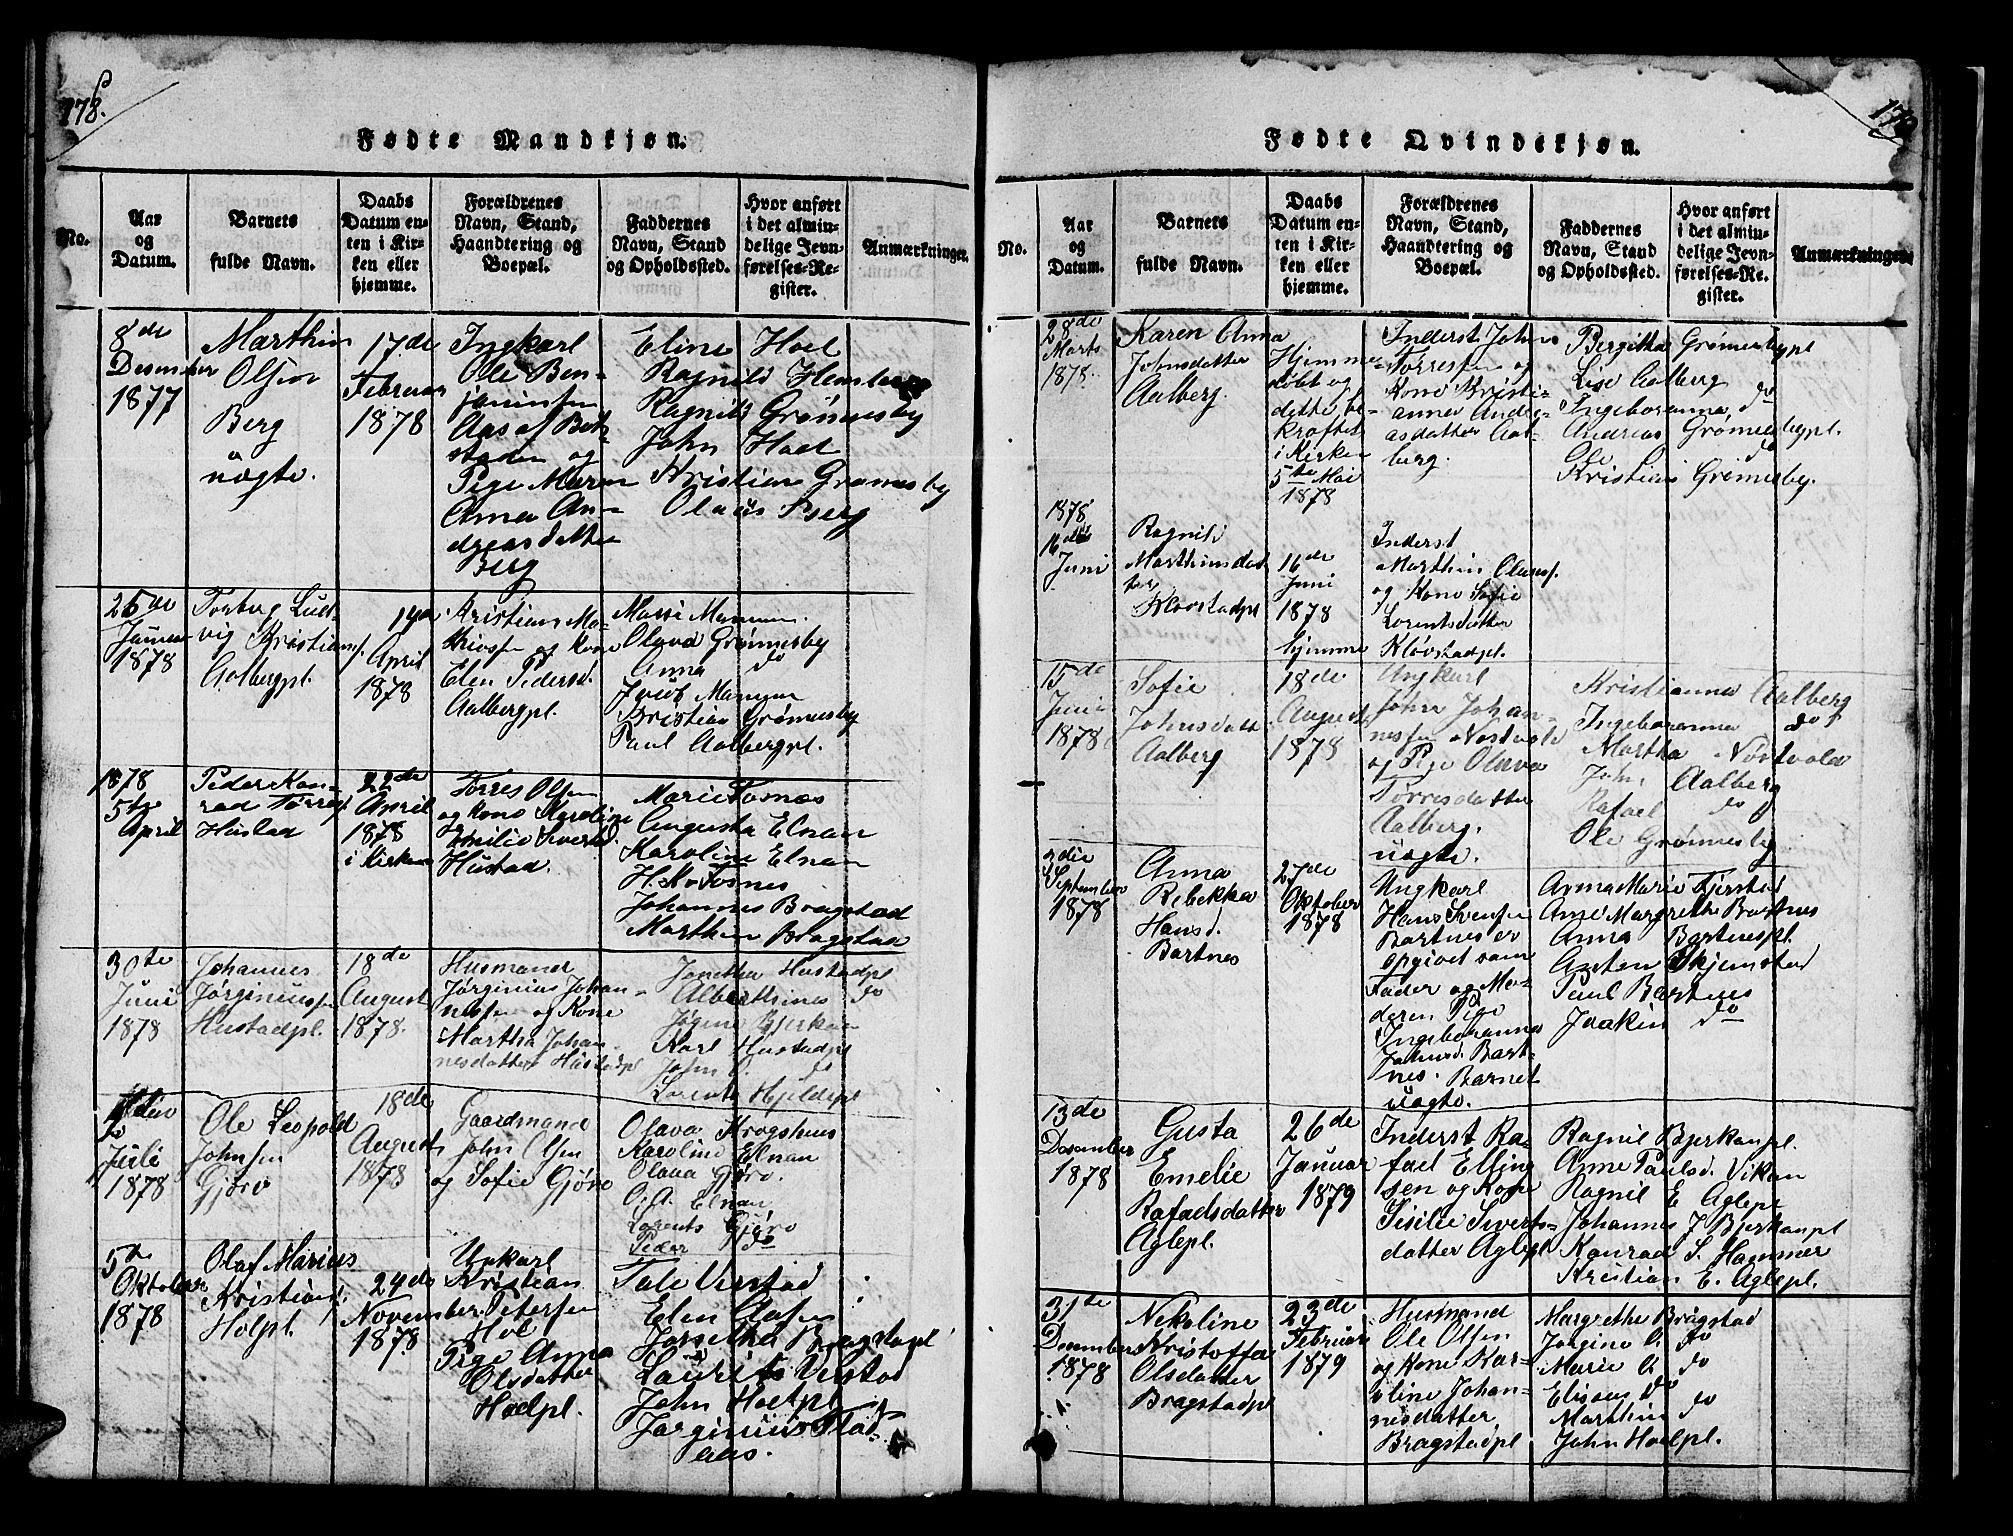 178.
Fødte Mandkjøn.
No.
Aar
og
Datum.
Barnets
fulde Navn.
Daabs
Datum en-
ten i Kir-
ken eller
hjemme.
Forældrenes
Navn, Stand,
Haandtering og
Boepæl.
Faddernes
Navn, Stand
og Opholdssted.
Hvor anført
i det almin-
delige Jevn-
førelses-Re-
gister.
Anmærkninger.
8de
Desember
1877
Marthin
Olsen
Berg
uægte.
17de
Februar
1878
Ungkarl
Ole Ben-
jaminsen
Aas af Bet-
staden og
Pige Maren
Anna An-
dreasdatter
Berg
Eline Hoel
Ragnild Hemsberg
Ragnild Grønnesby
John Hoel
Kristian Grønnesby
Olaus Berg
25de
Januar
1878
Torberg Lud-
vig Kristians.
Aalbergpl.
14de
April
1878
Kristian Ma-
thiasen og Kone
Elen Pedersd.
Aalbergpl.
Massi Mannum
Olava Grønnesby
Anna do
Jacob Mannum
Kristian Grønnesby
Paul Aalbergpl.
1878
5te
April
Peder Kon-
rad Tørres.
Hustad
22de
April
1878
i Kirken
Tørris Olsen
og Kone Karoline
Emilie Sivertsd.
Hustad.
Marie Fosnæs
Augusta Elnan
Karoline Elnan
H. K. Fosnes
Johannes Bragstad
Marthin Bragstad
30te
Juni
1878
Johannes
Jørginiussen
Hustadpl.
18de
August
1878.
Husmand
Jørginius Johan-
nessen og Kone
Martha Johan-
nesdatter Hustadpl
Jonetha Hustadpl
Alberthine do
Jøgine Bjerkan
Karl Hustadpl
John O. do
Lorents Hjeldepl
Juli
1878
Ole Leopold
Johnsen
Gjørv
18de
August
1878
Gaardmand
John Olsen
og Sofie Gjørv
Olava Krogshus
Karoline Elnan
Olava Gjørv.
O. A. Elnan
Lorents Gjørv
Peder do
5te
Oktober
1878
Olaf Marius
Kristians.
Holpl.
24de
November
1878
Unkarl
Kristian
Petersen
Hol
Pige Anna
Olsdatter
Hoelpl.
Tale Verstad
Elen Olsen
Josetha Bragstadpl
Laurits Verstad
John Hoelpl.
Jørginius Flat-
aas.
179
Fødte Qvindekjøn.
No.
Aar
og
Datum.
Barnets
fulde Navn.
Daabs
Datum en-
ten i Kir-
ken eller
hjemme.
Forældrenes
Navn, Stand,
Haandtering og
Boepæl.
Faddernes
Navn, Stand
og Opholdssted.
Hvor anført
i det almin-
delige Jevn-
førelses-Re-
gister.
Anmærkninger.
28de
Marts
1878.
Karen Anna
Johnsdatter
Aalberg.
Hjemme-
døbt og
dette be-
kræftet
i Kirken
5te Mai
1878
Inderst Johns
Tørresen og
Kone Kristi-
anna Andre-
asdatter Aal-
berg.
Bergitha Grønnesbypl
Lise Aalberg
Ingeboranna do
Andreas Grønnesbypl.
Ole do
Kristian Grønnesby.
1878
16de
Juni
Ragnild
Marthinsdat-
ter
Kløvstadpl
16de
Juni
1878
hjemme
Inderst
Marthin Olauss.
og Kone Sofie
Lorentsdatter
Kløvstadpl.
15de
Juni
1878
Sofie
Johnsdatt.
Aalberg
18de
August
1878
Ungkarl
John Johan-
nessen Nøstvold
og Pige Olava
Tørresdatter
Aalberg.
uægte.
Kristianna Aalberg
Ingeboranna do
Martha Nøstvold
John Aalberg
Rafael do
Ole Grønnesby
3die
September
1878
Anna
Rebekka
Hansd.
Bartnes
27de
Oktober
1878
Ungkarl
Hans Svensen
Bartnes er
opgivet som
Fader og Mo-
deren Pige
Ingeboranna
Johnsd. Bart-
nes. Barnet
uægte.
Anna Marie Fjerstad
Ane Margrethe Bartnes
Anna Bartnespl.
Anten Skjemstad
Paul Bartnes
Joakin do
13de
Desember
1878
Gusta
Emelie
Rafaelsdatter
Aglepl.
26de
Januar
1879
Inderst Ra-
fael Elling-
sen og Kone
Sisilie Siverts-
datter Aglepl
Ragnil Bjerkanpl.
Anne Paulsd. Vikan
Ragnil E Aglepl
Johannes J Bjerkanpl
Konrad S. Hammer
Kristian E. Aglepl.
31te
Desember
1878
Nekoline
Kristoffa
Olsdatter
Bragstadpl
23de
Februar
1879
Husmand
Ole Olsen
og Kone Kar-
oline Johan-
nesdatter
Bragstadpl
Margrethe Bragstad
Jørgine O. do
Marie O. do
Eliseus do
Marthin do
John Hoelpl.